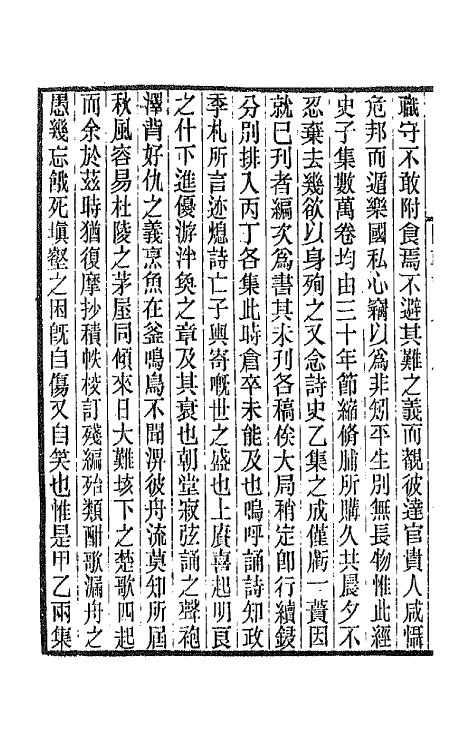 職守不敢附食焉不避其難之義而覩彼達官貴人咸懾
危邦而遁樂國私心竊以爲非矧平生別無長物惟此經
史子集數萬卷均由三十年節縮脩脯所購久共晨夕不
忍棄去幾欲以身殉之又念詩史乙集之成僅虧一蕢因
就已刊者編次爲書其未刊各稿俟大局稍定卽行續錄
分別排入丙丁各集此時倉卒未能及也嗚呼誦詩知政
季札所言迹熄詩亡子輿寄嘅世之盛也上賡喜起明良
之什下進優游泮奐之章及其衰也朝堂寂弦誦之聲袍
澤背好仇之義烹魚在釜鳴鳥不聞淠彼舟流莫知所屆
秋風容易杜陵之茅屋同傾來日大難垓下之楚歌四起
而余於茲時猶復摩抄積帙校訂殘編殆類酣歌漏舟之
愚幾忘餓死塡壑之困旣自傷又自笑也惟是甲乙兩集